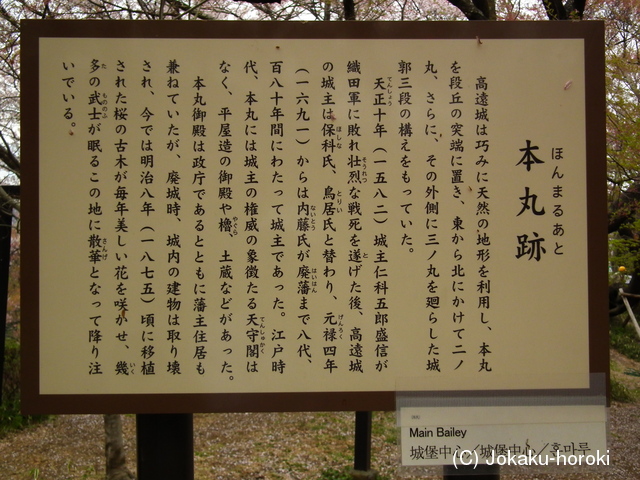 ほんまるあと
本丸跡
高遠城は巧みに天然の地形を利用し、本丸
を段丘の突端に置き、東から北にかけて二ノ
丸、さらに、その外側に三ノ丸を廻らした城
郭三段の構えをもっていた。
天正十年（一五八二）城主仁科五郎盛信が
織田軍に敗れ壮烈な戦死を遂げた後、高遠城
の城主は保科氏、鳥居氏と替わり、元禄四年
（一六九一）からは内藤氏が廃藩まで八代、
百八十年間にわたって城主であった。江戸時
代、本丸には城主の権威の象徴たる天守閣は
なく、平屋造の御殿や櫓、土蔵などがあった。
本丸御殿は政庁であるとともに藩主住居も
兼ねていたが、廃城時、城内の建物は取り壊
され、今では明治八年（一八七五）頃に移植
された桜の古木が毎年美しい花を咲かせ、幾
多の武士が眠るこの地に散華となって降り注
いでいる。
Main Bailey
城堡中心／城堡中心／혼마루
(C) Jokaku-horoki